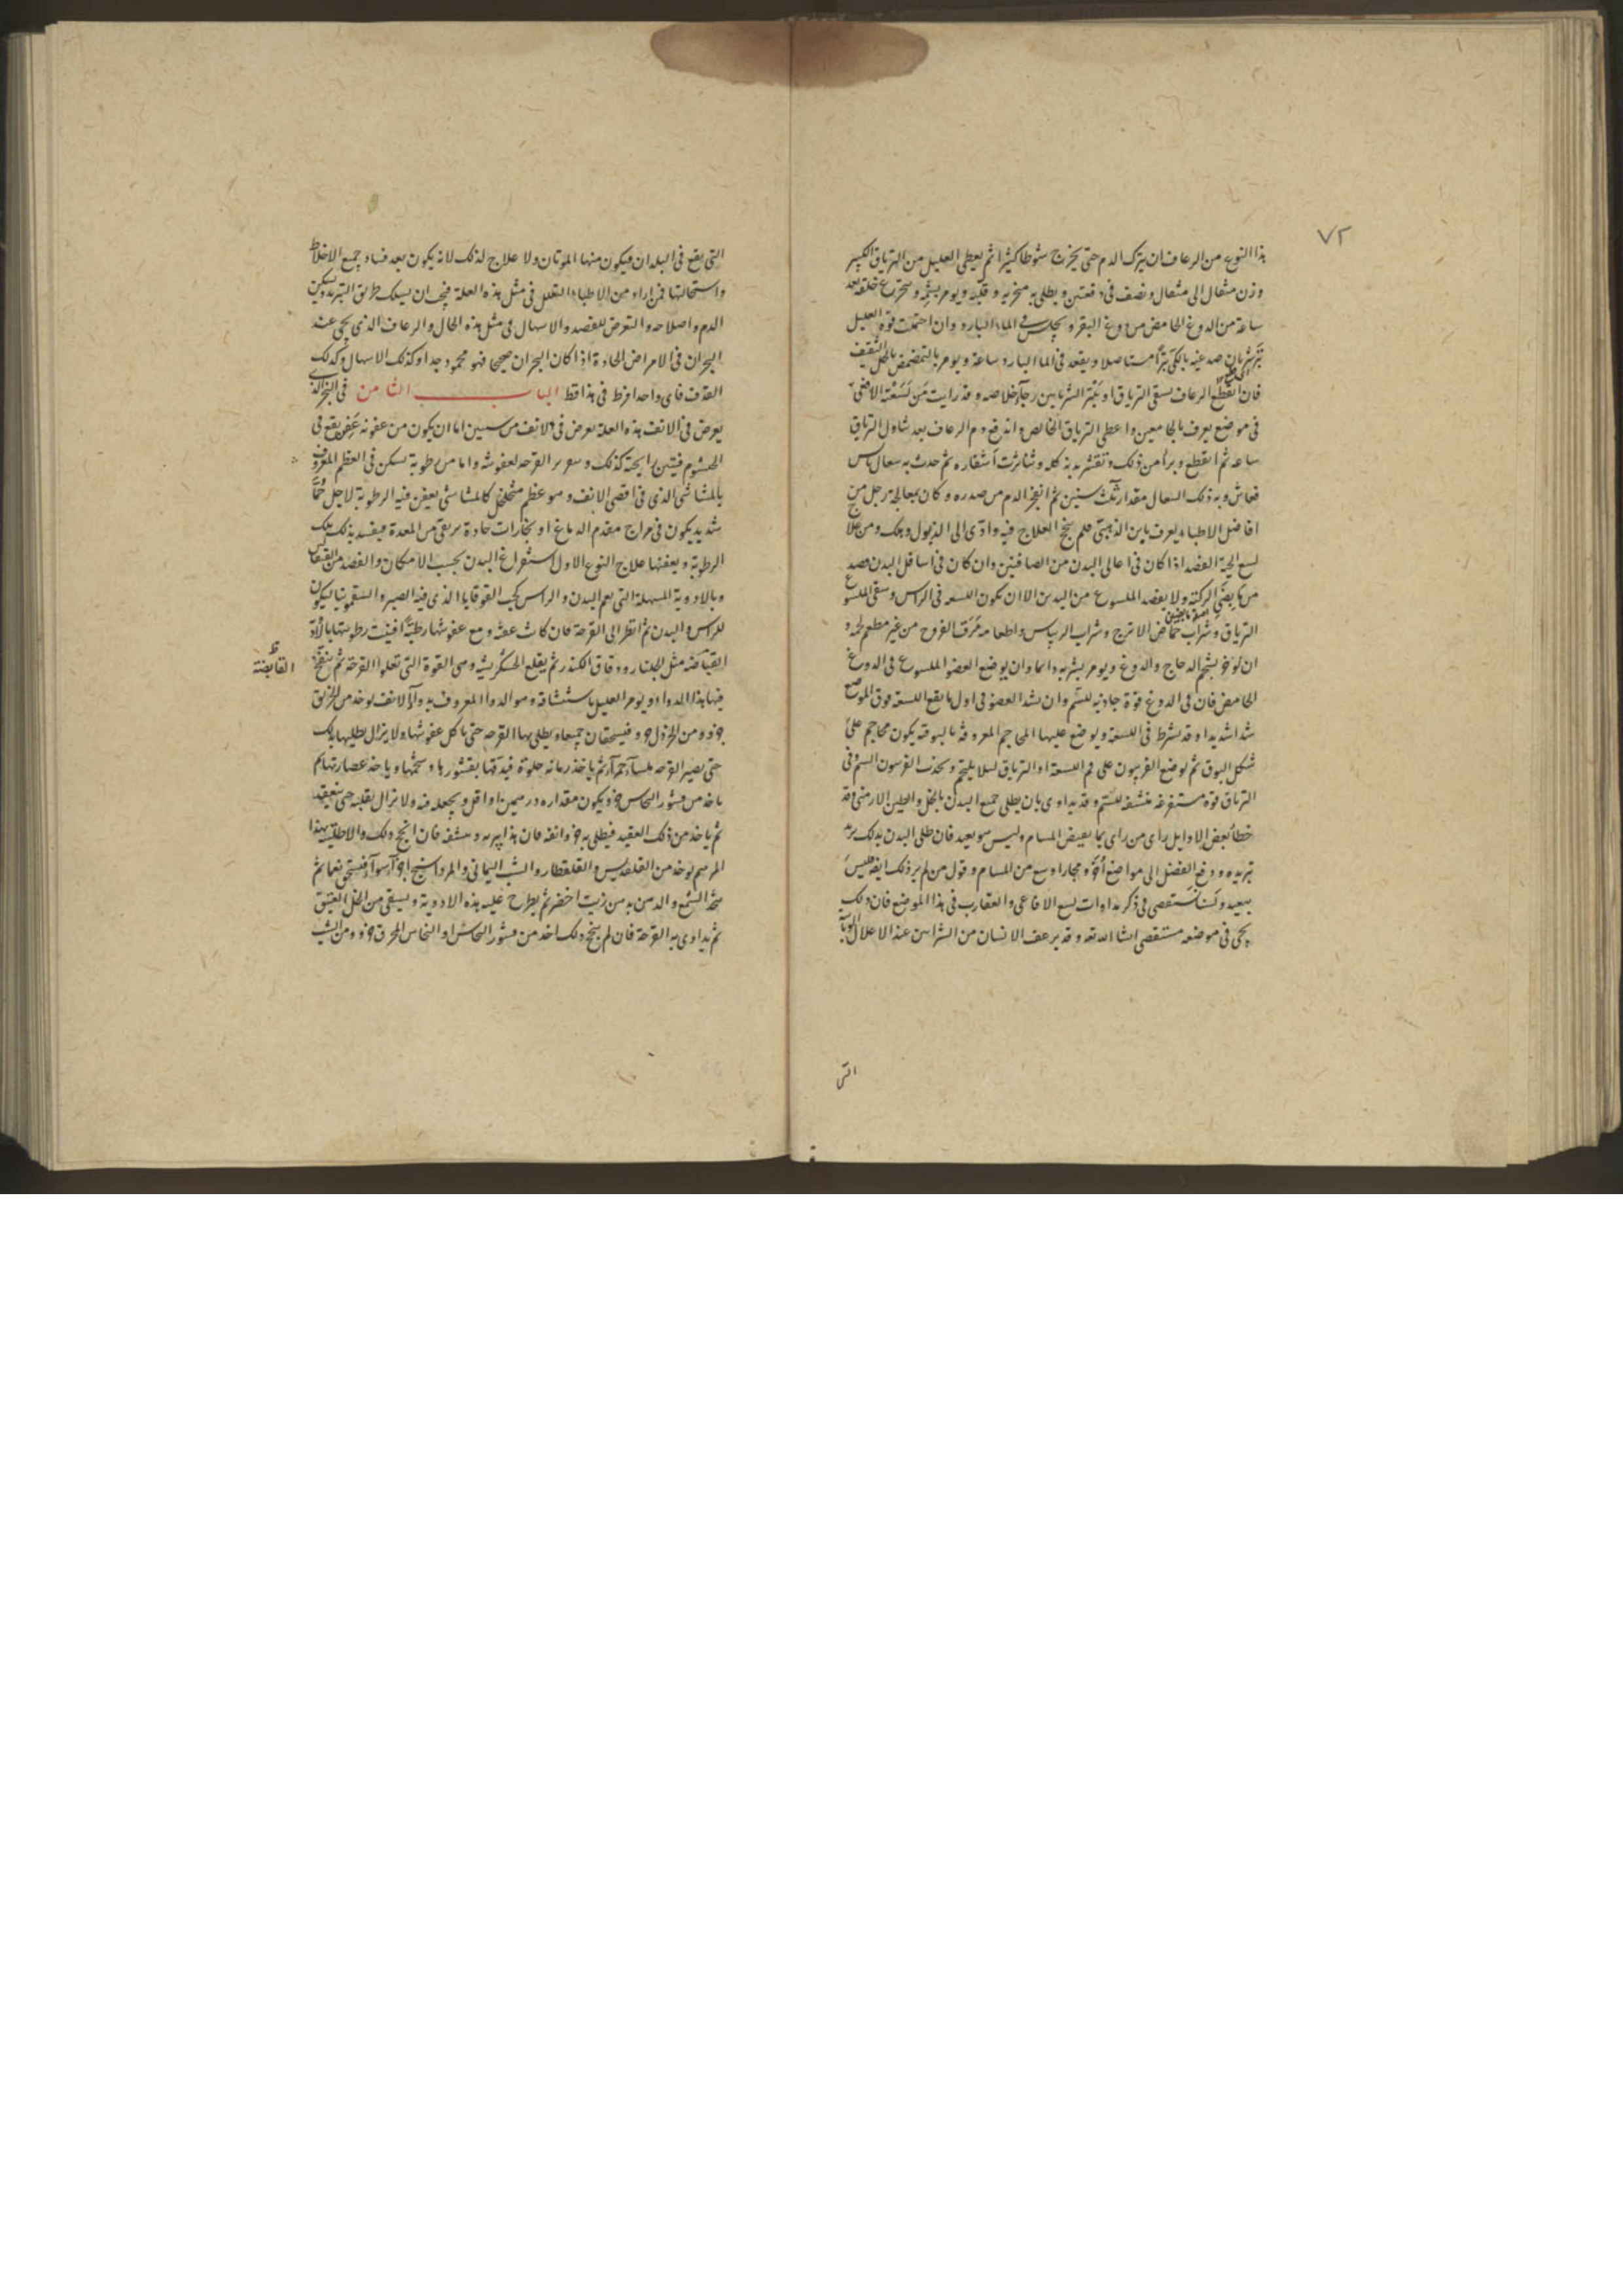 ٧٢
هذا النوع من الرعاف ان يترك الدم حتى يخرج شوطا كثيرا ثم يعطى العليل من الترياق الكبير
وزن مثقال الى مثقال ونصف فى دفعتين ويطلى به منخريه وقلبه ويومر بشمه خلقه بعد
ساعة من الدوغ الحامض من دوغ البقر ويجلس فى الماء البارد وان احتملت قوة العليل
صدغيه بالكى مستاصلا ويقعد فى الماء البارد ساعة ويومر بالتمضمض بالخل الثقيف
فان انقطع الرعاف يسقى الترياق او الشريانين رجآء خلاصه وقد رايت من لسعته الافعى
فى موضع يعرف بالجامعين واعطى الترياق الخالص واندفع دم الرعاف بعد تناول الترياق
ساعه ثم انقطع وبرأ من ذلك وتقشر بدنه كله وتناثرت اشفاره ثم حدث به سعال يابس
فعاش وبه ذلك السعال مقدار ثلث سنين ثم انفجر الدم من صدره وكان يعالجه رجل من
افاضل الاطباء يعرف بابن الذهبى فلم ينجح العلاج فيه وادى الى الذبول وهلك ومن علاج
لسع الحية الفصد اذا كان فى اعالى البدن من الصافنين وان كان فى اسافل البدن فصد
من الركبة ولا يفصد الملسوع من اليدين الا ان يكون اللسعه فى الراس وسقى الملسوع
الترياق وشراب حماض الاترج وشراب الريباس واطعامه مرق الفروج من غير مطعم لحمه و
ان لوخو بشحم الدجاج والدوغ ويومر بشربه دائما وان يوضع العضو الملسوع فى الدوغ
الحامض فان فى الدوغ قوة جاذبه للسم وان يشد العضو فى اول ما يقع اللسعة فوق الموضع
شدا شديدا وقد يشرط فى اللسعة ويوضع عليها المحاجم المعروفه بالبوقه يكون محاجم على
شكل البوق ثم يوضع الفربيون على فم اللسعة او الترياق ليلا يلتحم ويجذب الفربيون السم وفى
الترياق قوة مستفرغه منشفه للسم وقد يداوى بان يطلى جميع البدن بالخل والطين الارمنى وقد
خطأ بعض الاوايل راى من راى بما يقبض المسام وليس هو بعيد فان طلى البدن بذلك يريد
تبريده ودفع الفضل الى مواضع اخر ومجارا وسع من المسام وقول من لم ير ذلك ايضا ليس
ببعيد ولسنا نستقصى فى ذكر مداوات لسع الافاعى والعقارب فى هذا الموضع فان ذلك
يجى فى موضعه مستقصى انشا الله تعه وقد يرعف الانسان من الشرايين عند الاعلال الوبآئية
التى
التى يقع فى البلدان فيكون منها الموتان ولا علاج لذلك لانه يكون بعد فساد جميع الاخلاط
واستحالتها فمن اراد من الاطباء التعلل فى مثل هذه العلة فيجب ان يسلك طريق التبريد وتسكين
الدم واصلاحه والتعرض للفصد والاسهال فى مثل هذه الحال والرعاف الذى يجى عند
البحران فى الامراض الحادة اذا كان البحران صحيحا فهو محمود جدا وكذلك الاسهال وكذلك
القذف فاى واحد افرط فى هذا قط الباب الثامن فى البخر الذى
يعرض فى الانف هذه العلة يعرض فى الانف من سببين اما ان يكون من عفونه عفن يقع فى
الخيشوم فينتن رايحته كذلك القرحه لعفونته واما من رطوبة تسكن فى العظم المعروف
بالمشاشى الذى فى اقصى الانف وهو عظم متخلخل كالمشاشى يعفن فيه الرطوبة لاجل حمآ
شديد يكون فى مزاج مقدم الدماغ او بخارات حادة يرتقى من المعدة فيفسد بذلك تلك
الرطوبة ويعفنها علاج النوع الاول استفراغ البدن بحسب الامكان والفصد من القيفال
وبالادوية المسهلة التى يعم البدن والراس كحب القوقايا الذى فيه الصبر والسقمونيا ليكون
للراس والبدن ثم انظر الى القرحة فان كانت عفنة ومع عفونتها رطبة افنيت رطوبتها بالادوية
القباضه مثل الجلنار ودقاق الكندر ثم يقلع الخشكريشه وهى القوة التى تعلوا القرحة ثم ينفخ
القابضة ظ
فيها هذا الدواء ويومر العليل باستنشاقه وهو الدوا المعروف بدوآء الانف يوخذ من الخربق
جزو ومن الخردل جزو فيسحقان جميعا ويطلى بهما القرحه حتى ياكل عفونتها ولا يزال يطليها بذلك
حتى يصير القرحه ملسآء حمرآء ثم ياخذ رمانه حلوة فيدقها بقشورها وشحمها وياخذ عصارتها ثم
ياخذ من قشور النحاس جزو ويكون مقداره درهمين او اقل ويجعله فيه ولا يزال يقلبه حتى ينعقد
ثم ياخذ من ذلك العقيد فيطلى به جزوانفه فان هذا يبريه وينشفه فان انجح ذلك والا طليته بهذا
المرهم يوخذ من القلقديس والقلقطار والشب اليمانى والمر واسفيداج اجزآء سوآء فيسحق نعما ثم
يتخذ الشمع والدهن من زيت اخضر ثم يطرح عليه هذه الادوية ويسقى من الخل العتيق
ثم يداوى به القرحة فان لم ينجح ذلك اخذ من قشور النحاس او النحاس المحرق جزو ومن الشب